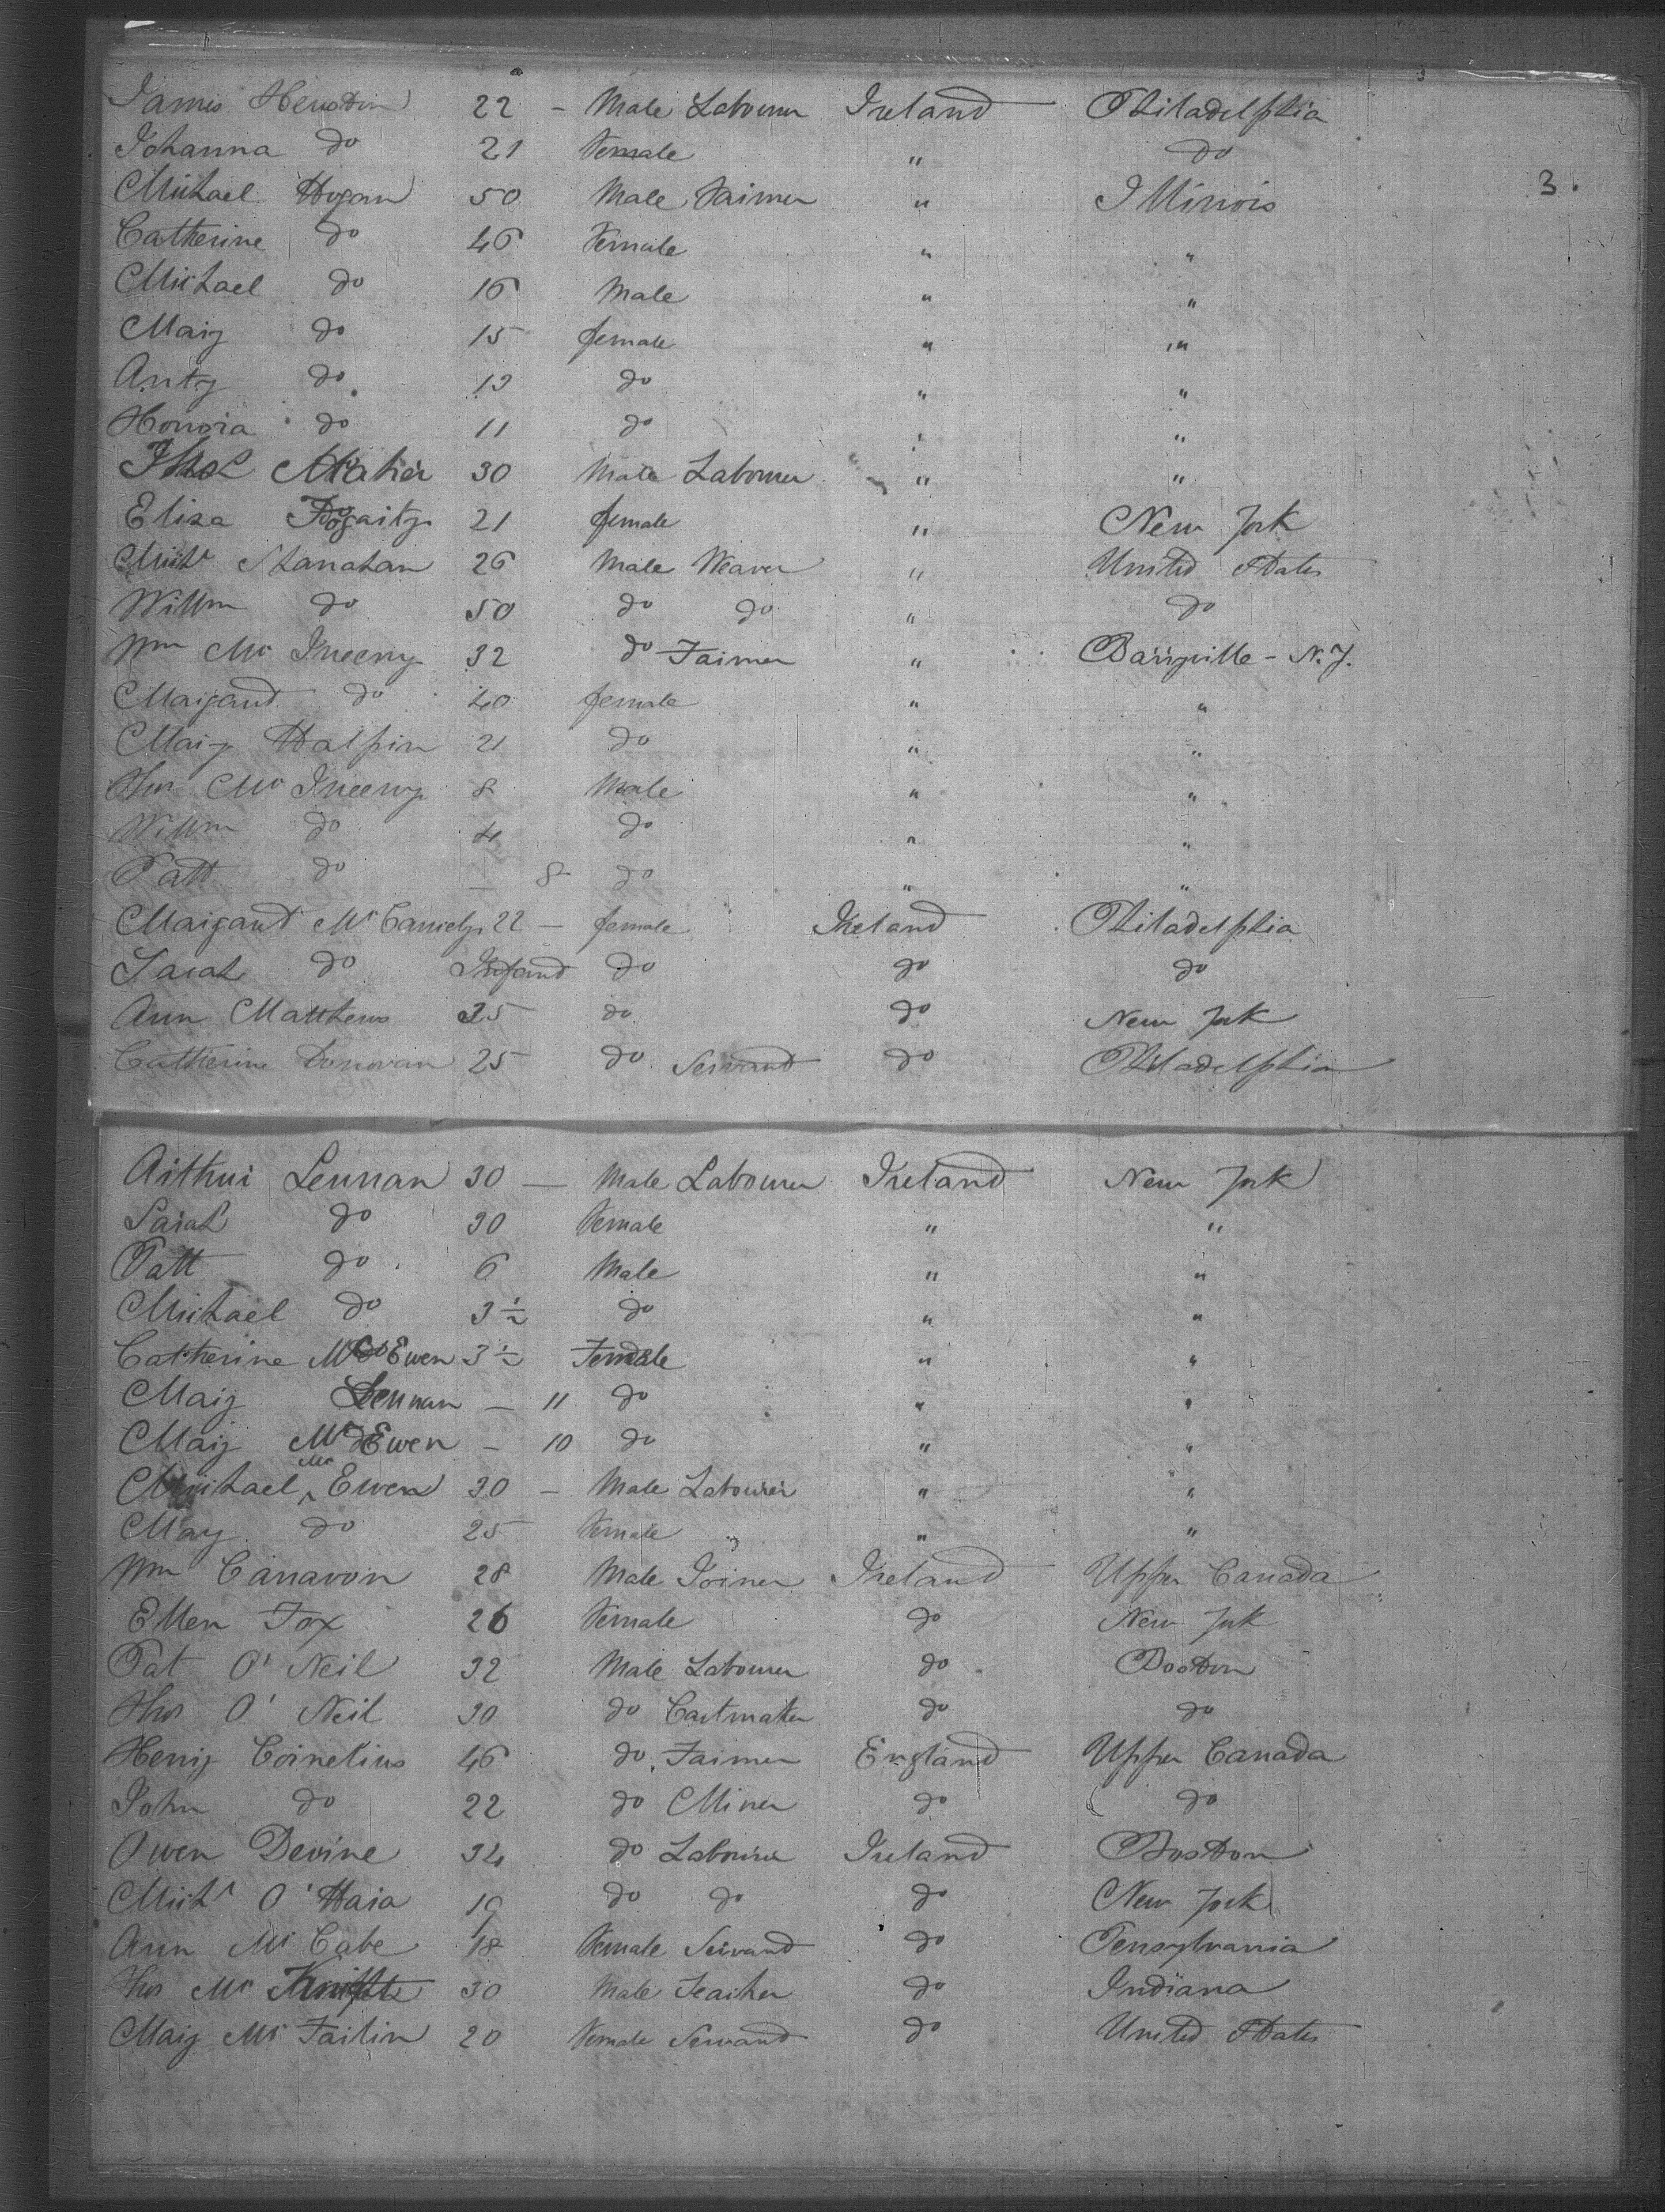 James Heuston 22 - Male Labourer Ireland Philadelphia
Johanna do 21 Female " do
Michael Hogan 50 Male Farmer " Illinois
3.
Catherine do 46 Female " "
Michael do 16 Male " "
Mary do 15 female " "
Anty do 13 do " "
Honora do 11 do " "
Thos Maher 30 Male Labourer " "
Eliza Fogarty 21 female " New York
Michl Shanahan 26 Male Weaver " United States
Willm do 50 do do " do
Wm Mc Ineeny 32 do Farmer " - N. J.
Margaret do 40 female " "
Mary Halpin 21 do " "
Thos Mc Ineeny 8 Male " "
Willm do 4 do " "
Patt do - 8 do " "
Margaret Mc 22 - female Ireland Philadelphia
Sarah do Infant do do do
Ann Matthews 35 do do New York
Catherine Donovan 25 do Servant do Philadelphia
Arthur Lennan 30 - Male Labourer Ireland New York
Sarah do 30 Female " "
Patt do 6 Male " "
Michael do 3½ do " "
Catherine Mc Ewen 3½ Female " "
Mary Lennan - 11 do " "
Mary Mc Ewen - 10 do " "
Michael Mc Ewen 30 - Male Labourer " "
Mary do 25 Female " " "
Wm Canavon 28 Male Joiner Ireland Upper Canada
Ellen Fox 26 Female do New York
Pat O' Neil 32 Male Labourer do Boston
Thos O' Neil 30 do Cartmaker do do
Henry Cornelius 46 do Farmer England Upper Canada
John do 22 do Miner do do
Owen Devine 34 do Labourer Ireland Boston
Michl O' Hara 19 do do do New York
Ann Mc Cabe 18 Female Servant do Pensylvania
Thos Mc 30 Male Teacher do Indiana
Mary Mc Farlin 20 Female Servant do United States